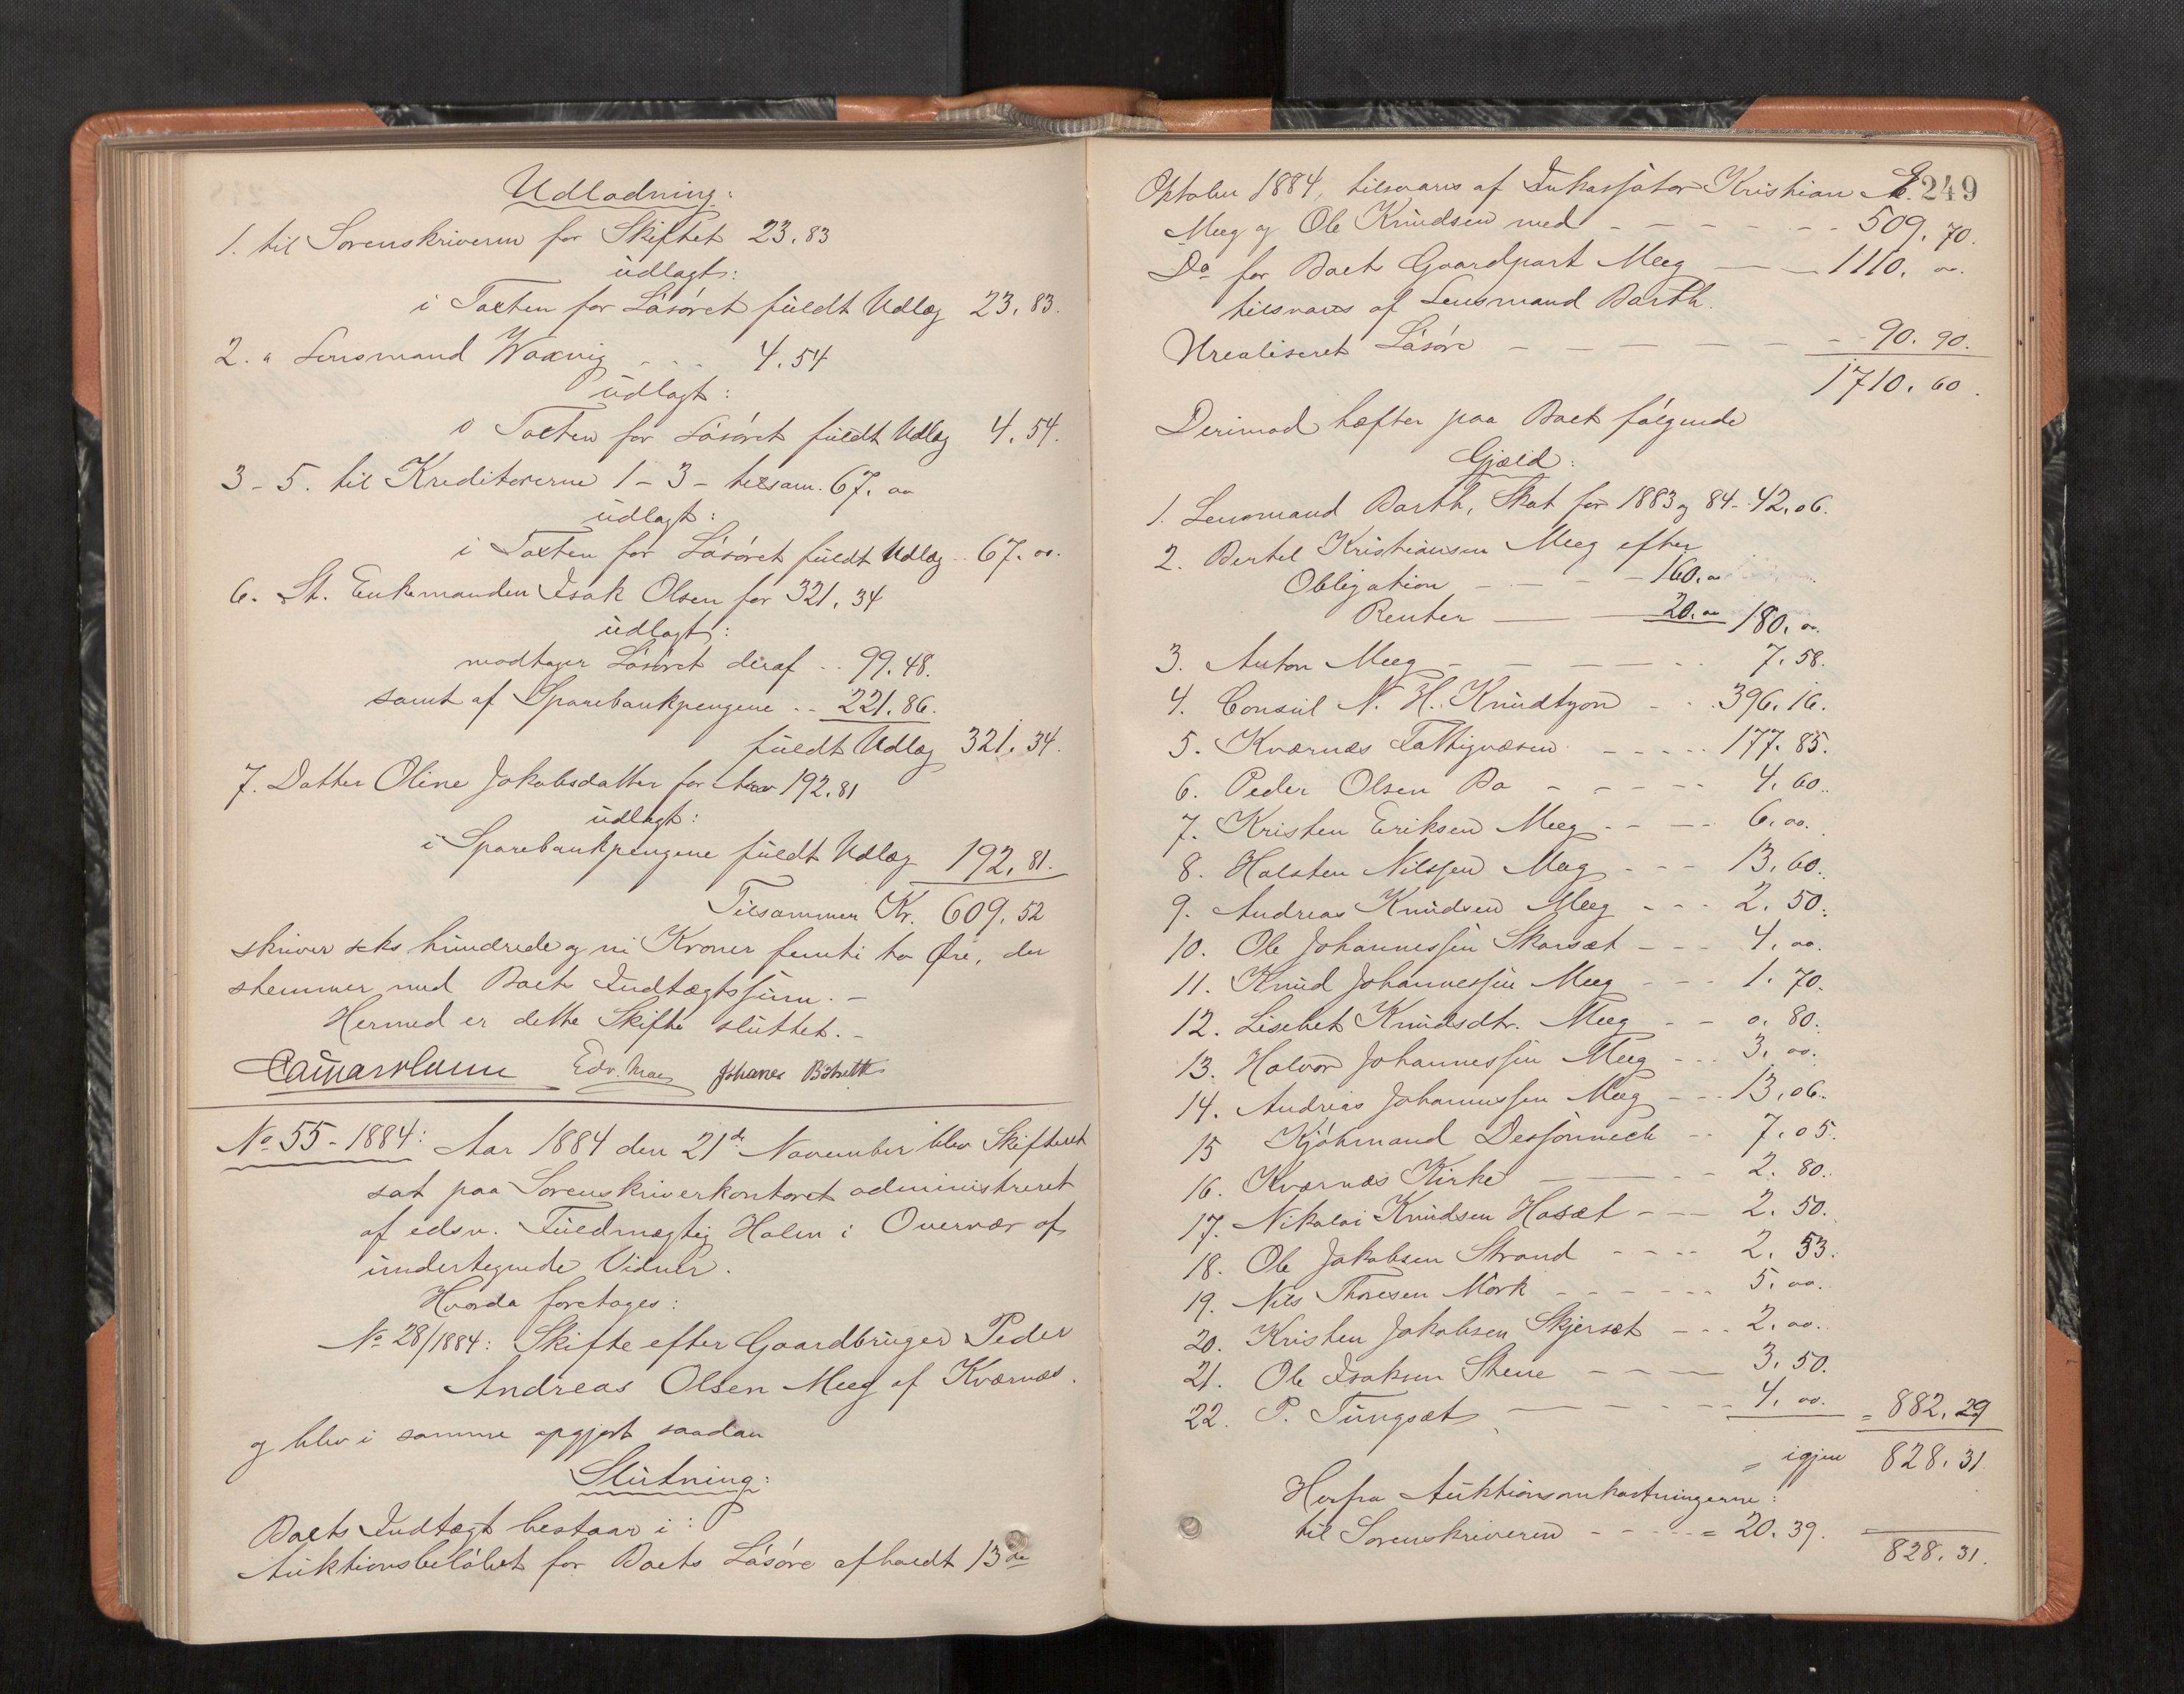 Udlodning:
1. til Sorenskriveren for Skiftet 23.83
udlagt:
i Taxten for Løsøret fuldt Udlæg 23.83.
2. " Lensmand Waxvig . . . 4.54
udlagt:
i Taxten for Løsøret fuldt Udlæg 4.54.
3-5. til Kreditorerne 1-3- tilsam. 67.00
udlagt:
i Taxten for Løsøret fuldt Udlæg .. 67.00.
6. St. Enkemanden Isak Olsen for 321.34
udlagt:
modtager Løsøret deraf .. 99.48.
samt af Sparebankpengene .. 221.86.
fuldt Udlæg 321.34.
7. Datter Oline Jakobsdatter for 192.81
udlagt:
i Sparebankpengene fuldt Udlæg 192.81.
Tilsammen Kr. 609.52
skriver seks hundrede og ni Kroner femti to Øre, der
stemmer med Boets Indtægtssum. -
Hermed er dette Skifte sluttet. -
Edv. Johanes
No 55-1884: Aar 1884 den 21de November blev Skifteret
sat paa Sorenskriverkontoret administreret
af edsv. Fuldmægtig Holm i Overvær af
undertegnede Vidner.
Hvorda foretages:
No 28/1884: Skifte efter Gaardbruger Peder
Andreas Olsen Meeg af Kværnæs.
og blev i samme opgjort saadan
Slutning:
Boets Indtægt bestaar i:
Auktionsbeløbet for Boets Løsøre afholdt 13de
249
Oktober 1884, tilsvares af Inkassator Kristian E.
Meeg og Ole Knudsen med - - - - - 509.70.
Do for Boets Gaardpart Meeg - - 1110.00.
tilsvares af Lensmand Barth.
Urealiseret Løsøre - - - - - - 90.90.
1710.60.
Derimod hæfter paa Boet følgende
Gjæld:
1. Lensmand Barth, Skat for 1883 og 84 - 42.06.
2. Bertel Kristiansen Meeg efter
Obligation - - - - 160.00
Renter - - 20.00 180.00.
3. Anton Meeg - - - - - 7.58.
4. Consul N. H. Knudtzon - . . 396.16.
5. Kværnæs Fattigvæsen - - - - - 177.85.
6. Peder Olsen Bo - - - - - 4.60.
7. Kristen Eriksen Meeg - - - - 6.00.
8. Halsten Nilssen Meeg - - - 13.60.
9. Andreas Knudsen Meeg - - - 2.50.
10. Ole Johannessen Skarsæt - - - 4.00.
11. Knud Johannessen Meeg - - - 1.70.
12. Lisebet Knudsdtr. Meeg - - 0.80.
13. Halvor Johannessen Meeg - - - 3.00.
14. Andreas Johannessen Meeg - - - 13.06.
15 Kjøbmand Dessønneck - - 7.05.
16. Kværnæs Kirke - - - 2.80.
17. Nikolai Knudsen Hasæt - - - 2.50.
18. Ole Jakobsen Strand - - - - 2.53.
19. Nils Thoresen Mork - - - - - - 5.00.
20. Kristen Jakobsen Skjersæt - - - 2.00.
21. Ole Isaksen Stene - - - - 3.50.
22. P. Tungsæt - - - - - 4.00. = 882.29
= igjen 828.31.
Herfra Auktionsomkostningerne:
til Sorenskriveren - - - - = 20.39.
828.31.